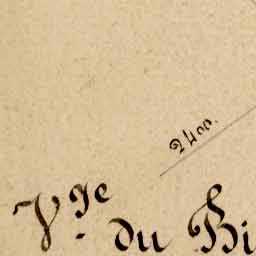 2400.
V.ge du Bi